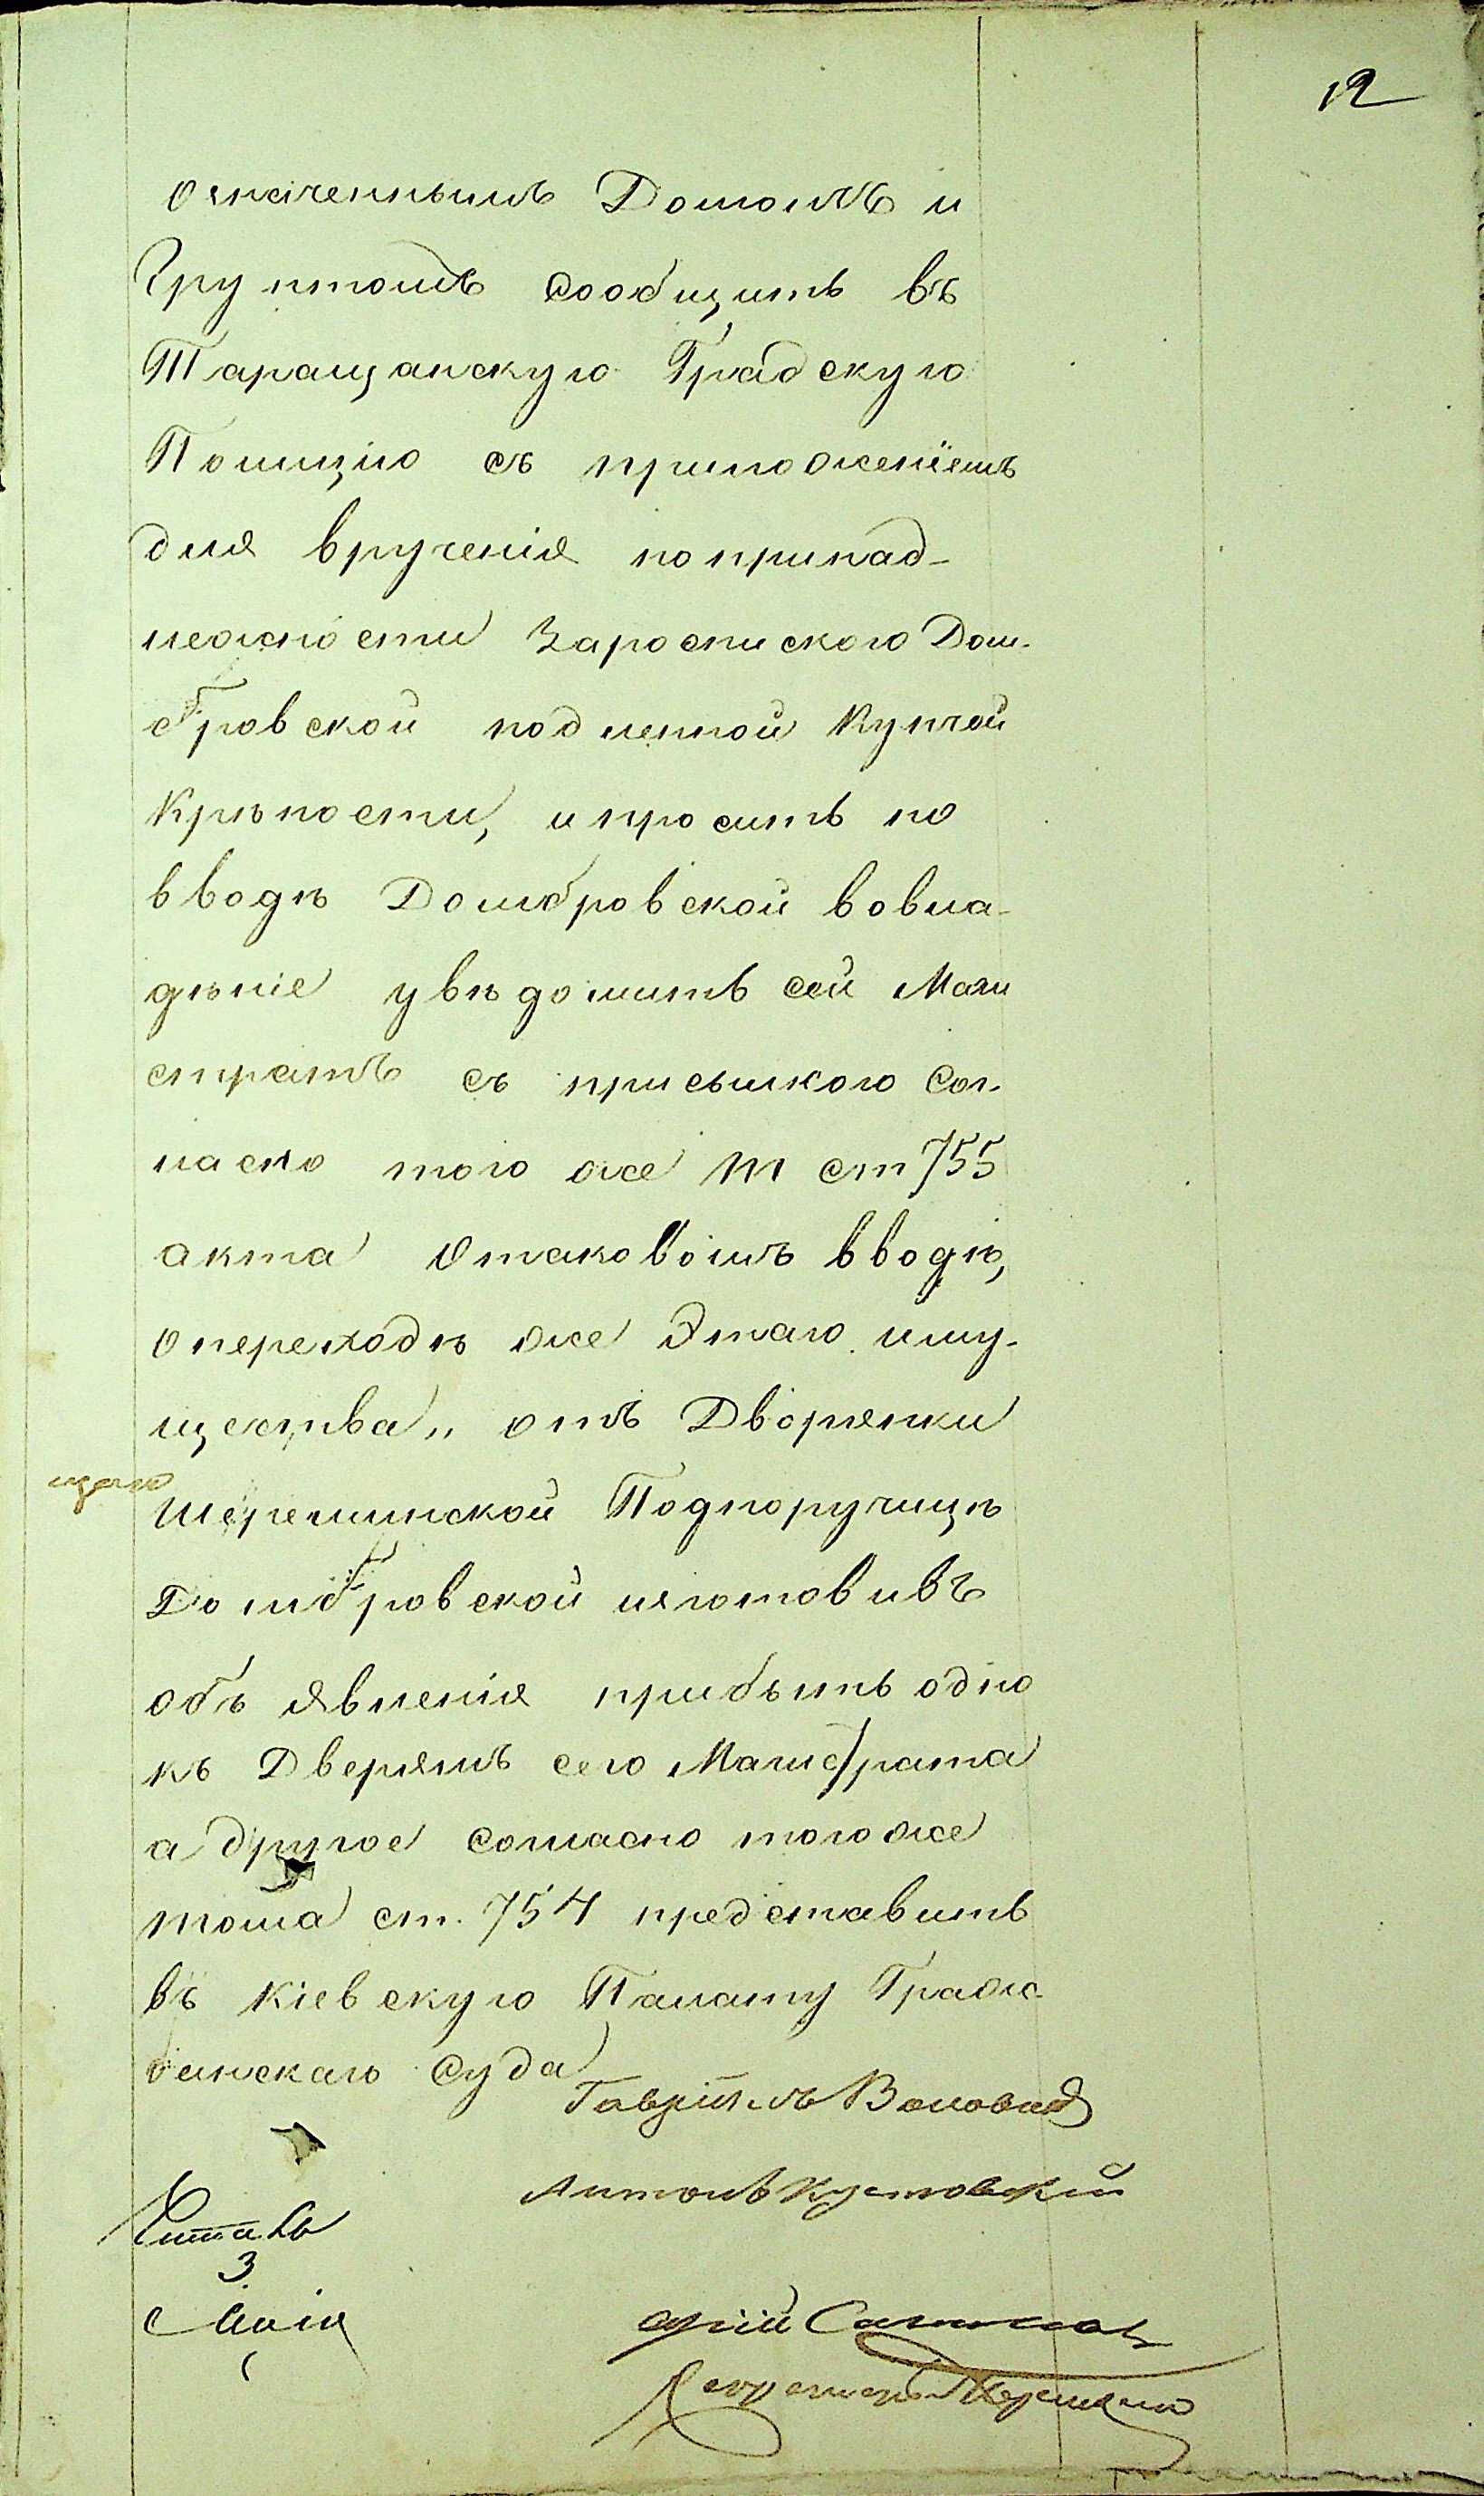 12
означеннымъ Домомъ и
Грунтомъ сообщить въ
Таращанскую Градскую
Полицію съ приложеніемъ
для врученія попринад-
лежности Зароспискою Дом-
бровской подленной Купчей
Крѣпости, и просить по
вводѣ Домбровской вовла-
дѣніе увѣдомить сей Маги
стратъ съ присылкою сог-
ласно того же Т ст 755
акта отаковомъ вводѣ,
опереходѣ же Этаго иму-
щества,, отъ Дворянки
Шереминской Подпоручицѣ
Домбровской изготовивъ
объявленія прибыть одно
къ Дверямъ сего Магистрата
а другое согласно тогоже
тома ст. 754 представить
въ Кіевскую Палату Граж
данскаго Суда
Гавріилъ
Антонъ Кустовский
Читалъ
3
Маія
Секретарь